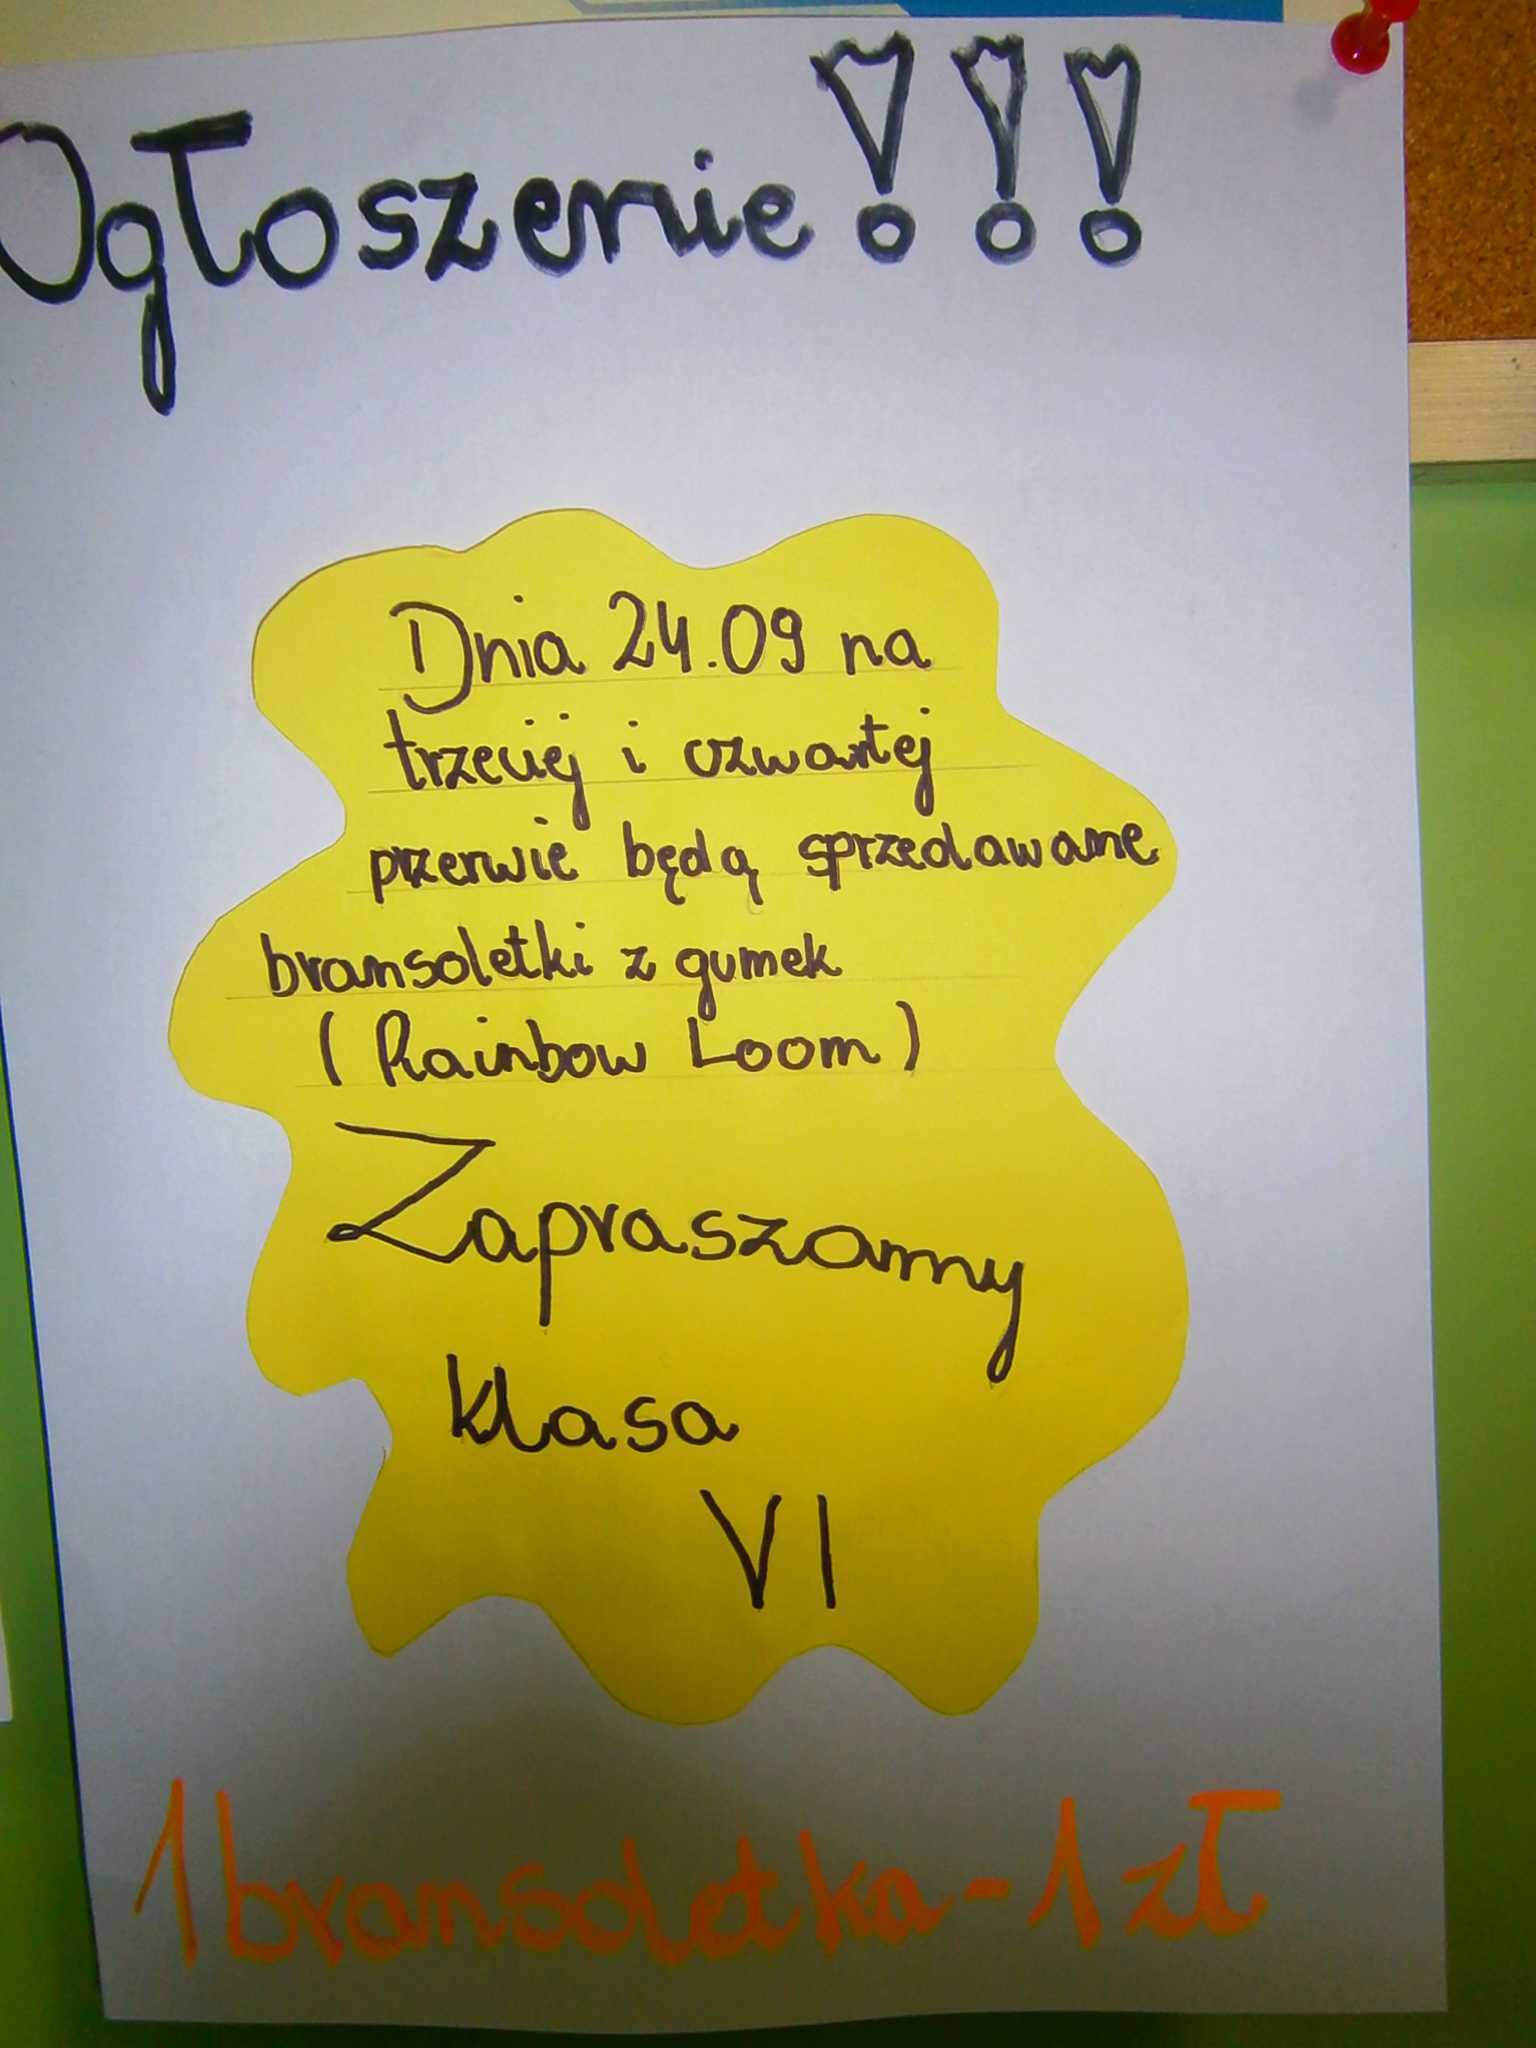 Ogłoszenie!!!
Dnia 24.09 na
trzeciej i czwartej
przerwie będą sprzedawane
bransoletki z gumek
(Rainbow Loom)
Zapraszamy
klasa
VI
1 bransoletka - 1 zł